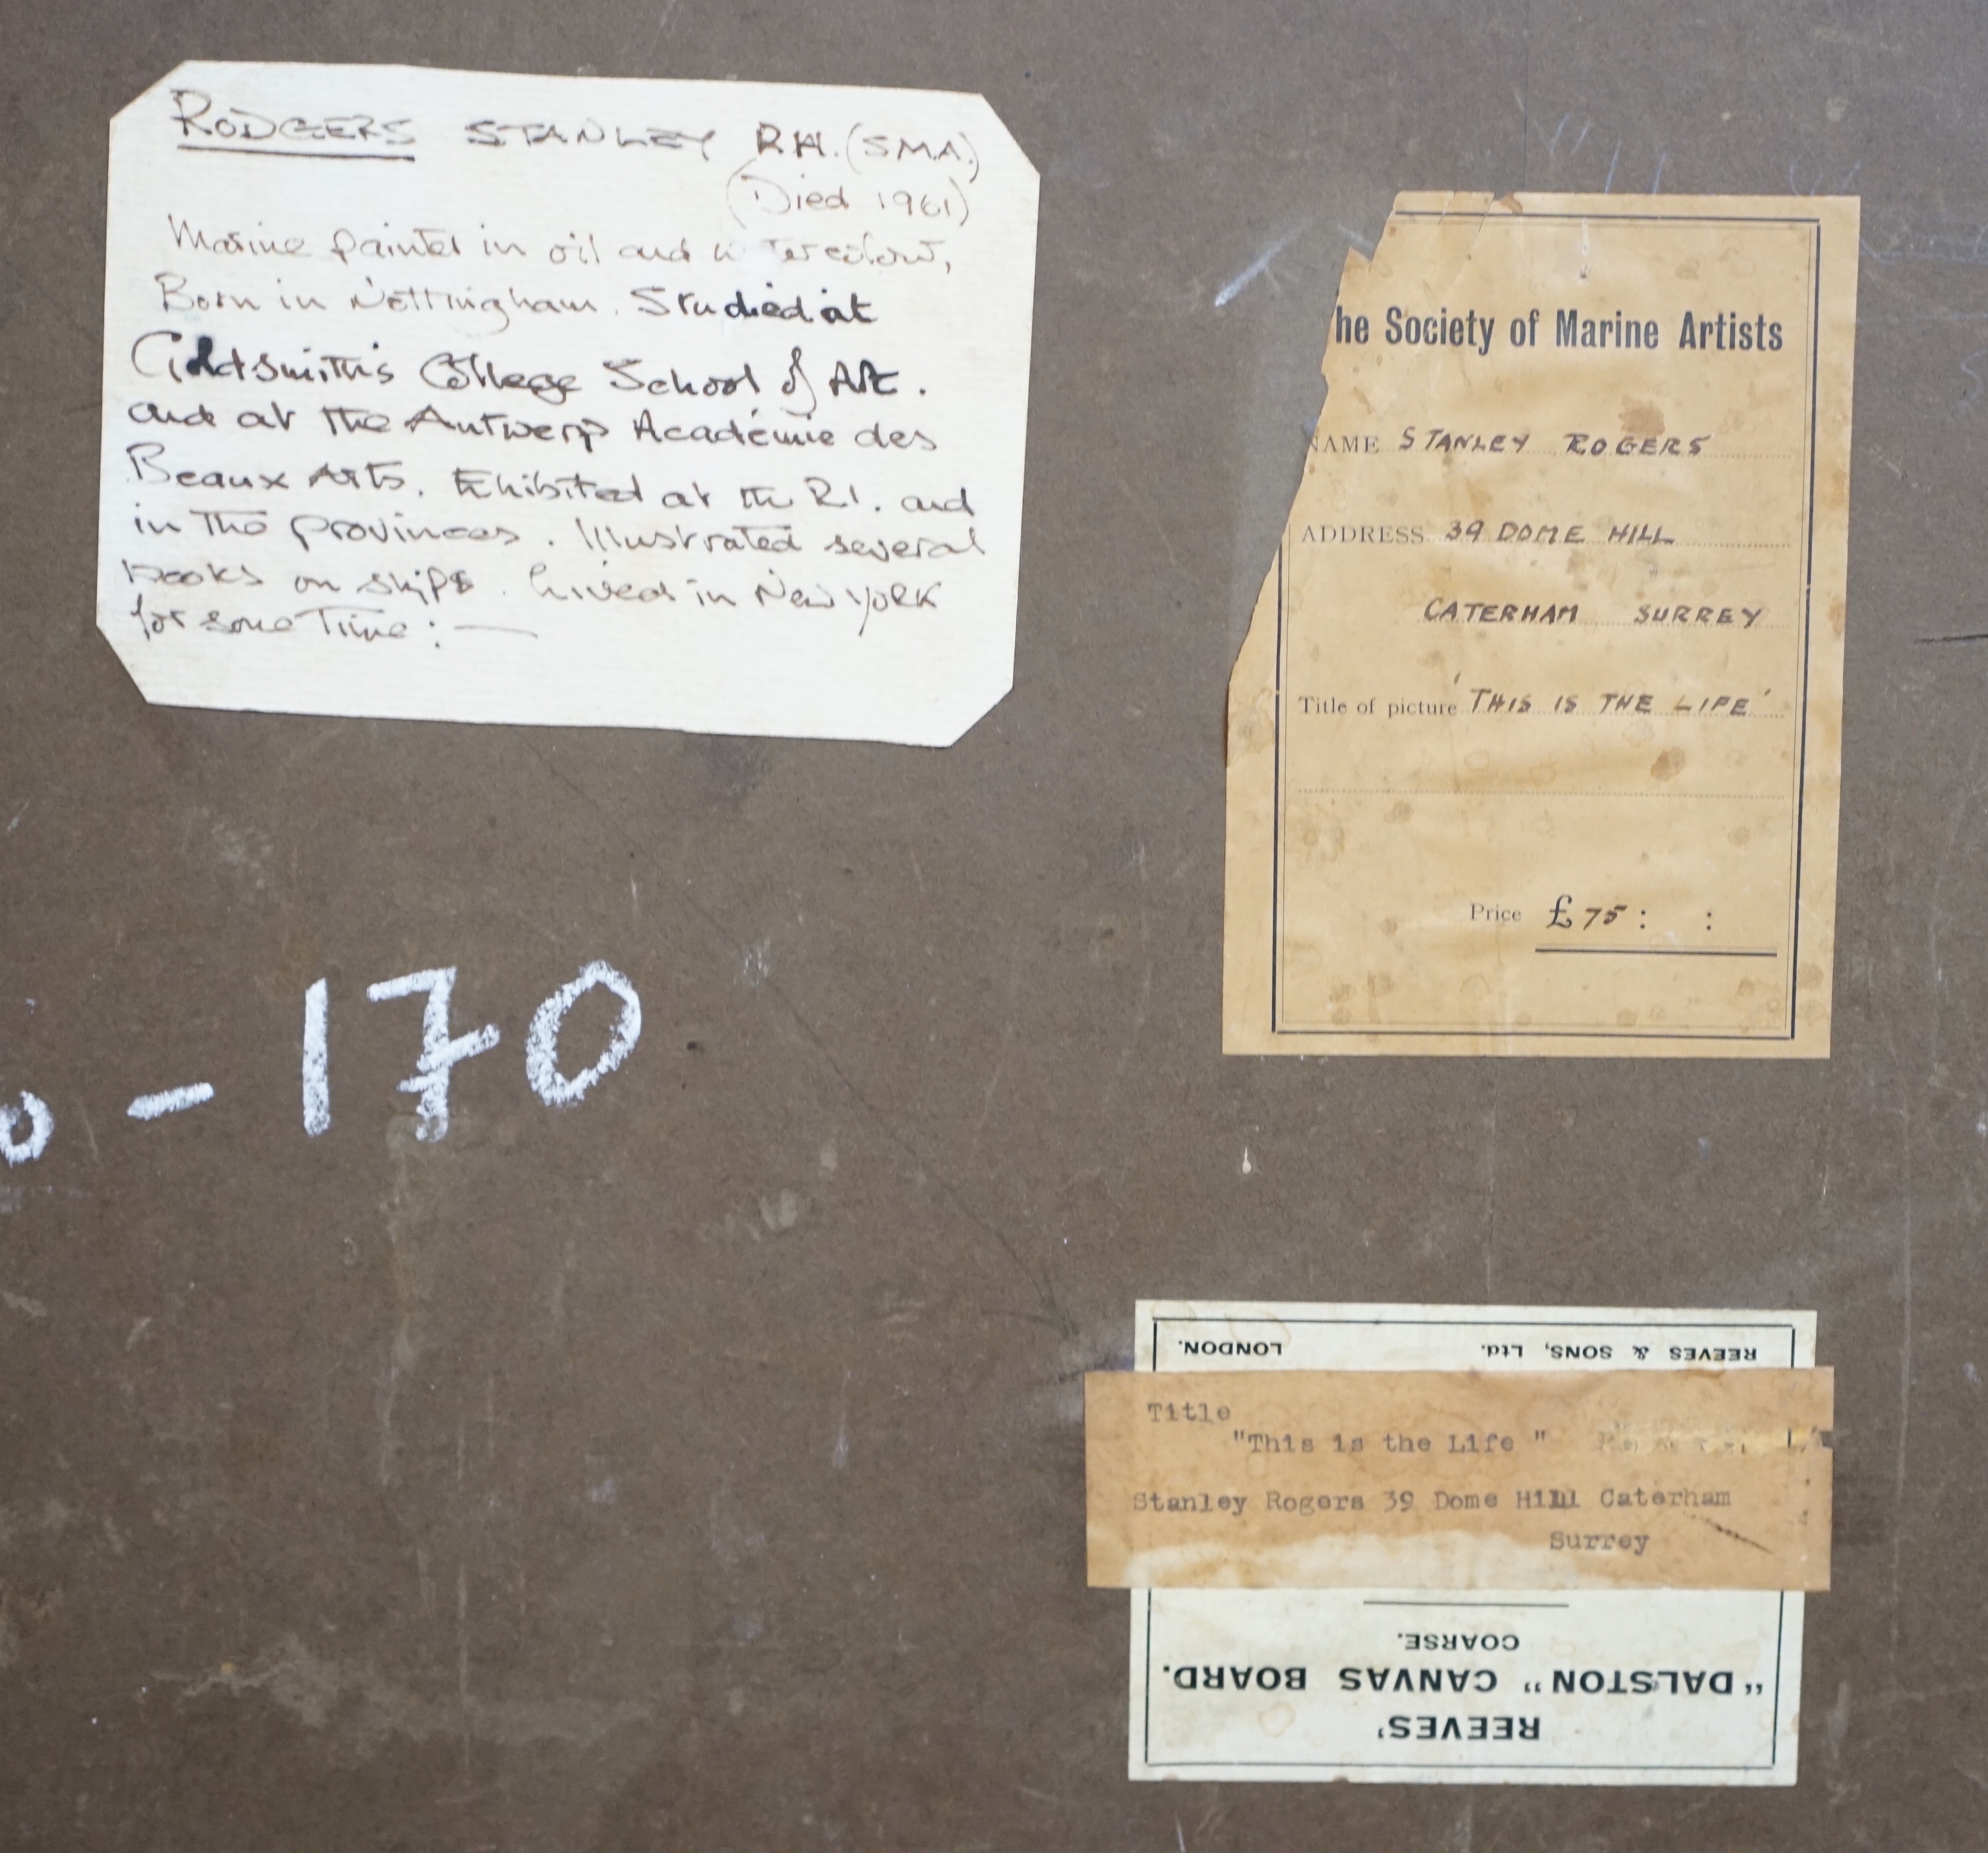 RODGERS STANLEY R.H. (S.M.A.)
(Died 1961)
Marine painter in oil and watercolour,
Born in Nottingham. Studied at
Goldsmith's College School of Art.
and at the Antwerp Académie des
Beaux Arts. Exhibited at the R.I. and
in the provinces. Illustrated several
books on ships. Lived in New York
for some Time: —
he Society of Marine Artists
NAME STANLEY ROGERS
ADDRESS 39 DOME HILL
CATERHAM SURREY
Title of picture 'THIS IS THE LIFE'
Price £75: :
- 170
REEVES & SONS, Ltd. LONDON.
Title
"This is the Life "
Stanley Rogers 39 Dome Hill Caterham
Surrey
REEVES'
"DALSTON" CANVAS BOARD.
COARSE.